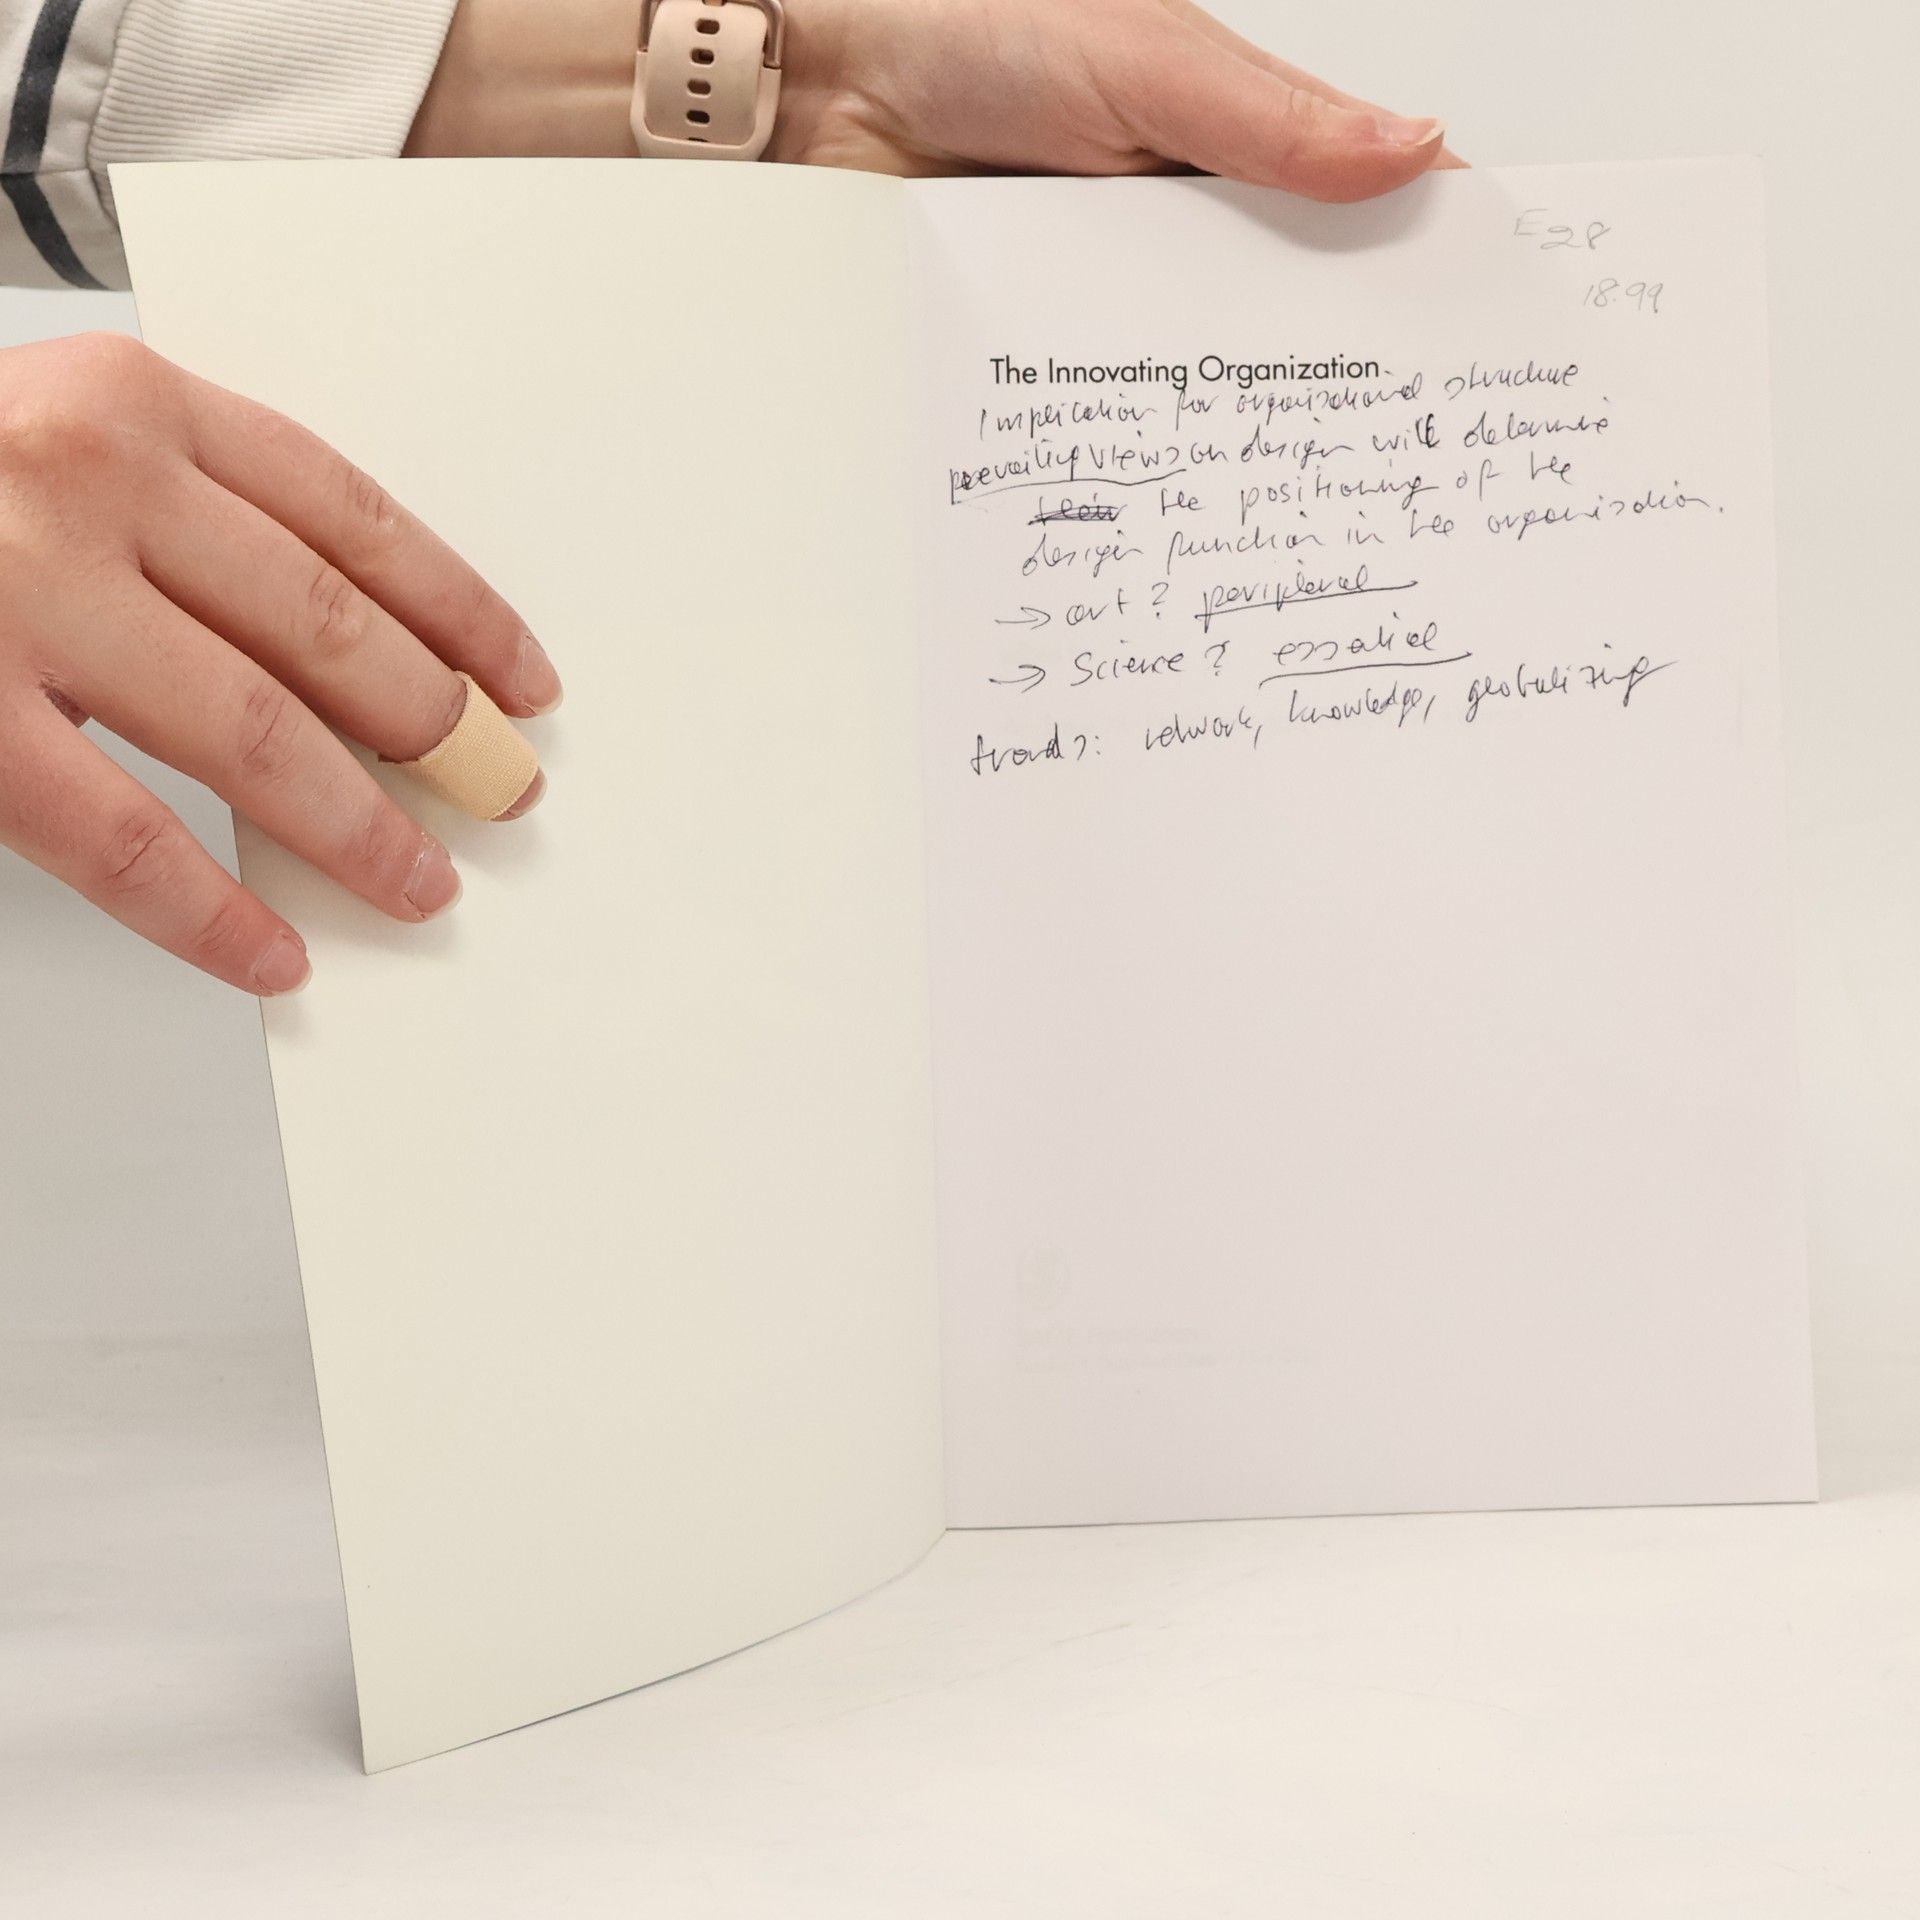 E28
18.99
The Innovating Organization
Implication for organisational structure
prevailing views on design will determine
the positioning of the
design function in the organisation.
→ art? peripheral
→ Science? essential
trends: network, knowledge, globalizing